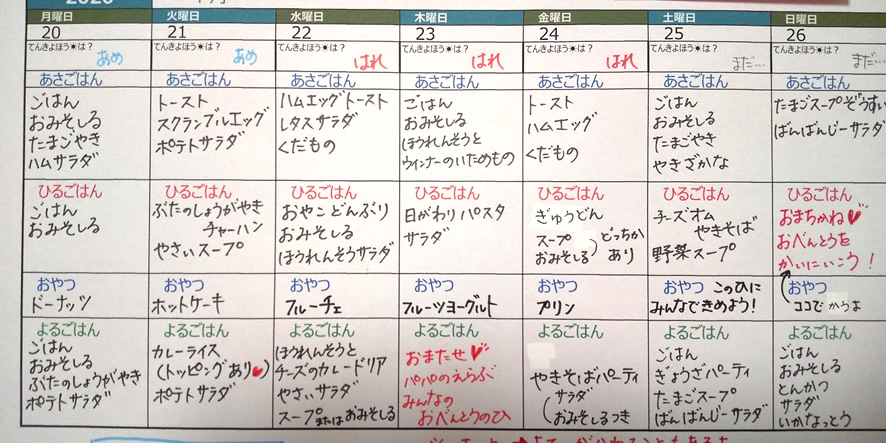 2020
月曜日 火曜日 水曜日 木曜日 金曜日 土曜日 日曜日
20 21 22 23 24 25 26
てんきよほう☀は? てんきよほう☀は? てんきよほう☀は? てんきよほう☀は? てんきよほう☀は? てんきよほう☀は? てんきよほう☀は?
あめ あめ はれ はれ はれ まだ… まだ…
あさごはん
ごはん
おみそしる
たまごやき
ハムサラダ
あさごはん
トースト
スクランブルエッグ
ポテトサラダ
あさごはん
ハムエッグトースト
レタスサラダ
くだもの
あさごはん
ごはん
おみそしる
ほうれんそうと
ウィンナーのいためもの
あさごはん
トースト
ハムエッグ
くだもの
あさごはん
ごはん
おみそしる
たまごやき
やきざかな
あさごはん
たまごスープぞうすい
ばんばんじーサラダ
ひるごはん
ごはん
おみそしる
ひるごはん
ぶたのしょうがやき
チャーハン
やさいスープ
ひるごはん
おやこどんぶり
おみそしる
ほうれんそうサラダ
ひるごはん
日がわりパスタ
サラダ
ひるごはん
ぎゅうどん
スープ
おみそしる
どっちか
あり
ひるごはん
チーズオム
やきそば
野菜スープ
ひるごはん
おまちかね♥
おべんとうを
かいにいこう!
おやつ
ドーナッツ
おやつ
ホットケーキ
おやつ
フルーチェ
おやつ
フルーツヨーグルト
おやつ
プリン
おやつ このひに
みんなできめよう!
おやつ
ココでかうよ
よるごはん
ごはん
おみそしる
ぶたのしょうがやき
ポテトサラダ
よるごはん
カレーライス
(トッピングあり♥)
ポテトサラダ
よるごはん
ほうれんそうと
チーズのカレードリア
やさいサラダ
スープまたはおみそしる
よるごはん
おまたせ♥
パパのえらぶ
みんなの
おべんとうのひ
よるごはん
やきそばパーティ
サラダ
おみそしるつき
よるごはん
ごはん
ぎょうざパーティ
たまごスープ
ばんばんじーサラダ
よるごはん
ごはん
おみそしる
とんかつ
サラダ
いかなっとう